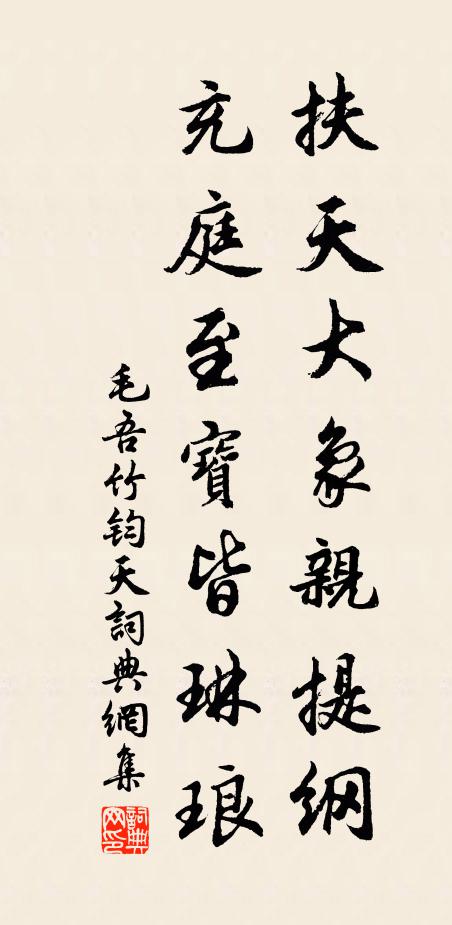 扶天大象親提纲
充庭至寶皆琳琅
毛吾竹鈞天詞典網集
詞典网印